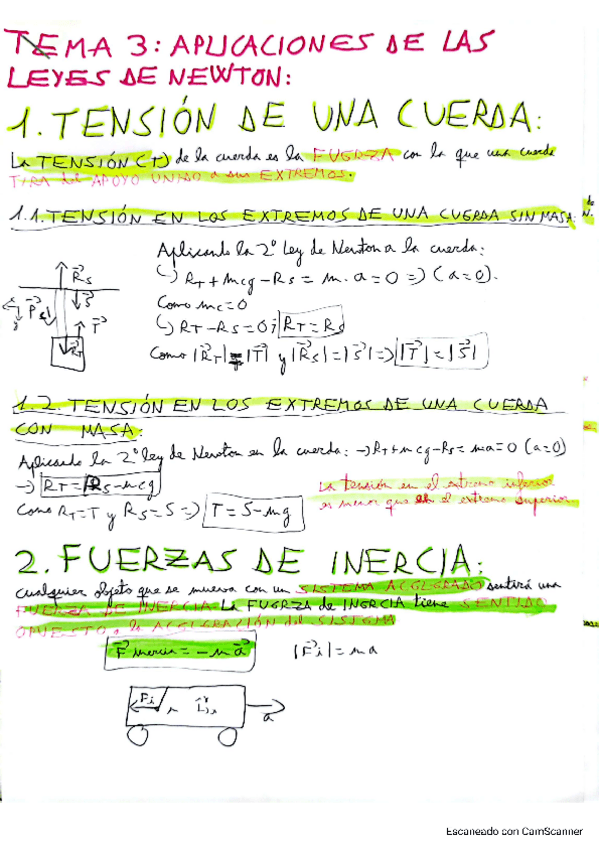 TEMA 3: APLICACIONES DE LAS
LEYES DE NEWTON:
1. TENSIÓN DE UNA CUERDA:
La TENSIÓN (T) de la cuerda es la FUERZA con la que una cuerda
TIRA del APOYO UNIDO a sus EXTREMOS.
1.1. TENSIÓN EN LOS EXTREMOS DE UNA CUERDA SIN MASA:
Aplicando la 2º Ley de Newton a la cuerda:
↳ RT + mcg - Rs = m·a = 0 => (a=0).
Como mc = 0
↳ RT - Rs = 0; RT = Rs
Como |RT| = |T| y |Rs| = |S| => |T| = |S|
1.2. TENSIÓN EN LOS EXTREMOS DE UNA CUERDA
CON MASA:
Aplicando la 2º ley de Newton en la cuerda: → RT + mcg - Rs = ma = 0 (a=0)
→ RT = Rs - mcg
Como RT = T y Rs = S => T = S - mg
La tensión en el extremo inferior
es menor que en el extremo superior
2. FUERZAS DE INERCIA:
Cualquier objeto que se mueva con un SISTEMA ACELERADO sentirá una
FUERZA DE INERCIA. La FUERZA de INERCIA tiene SENTIDO
OPUESTO a la ACELERACIÓN del SISTEMA
F inercia = - m a
|Fi| = m a
Fi
a
Escaneado con CamScanner